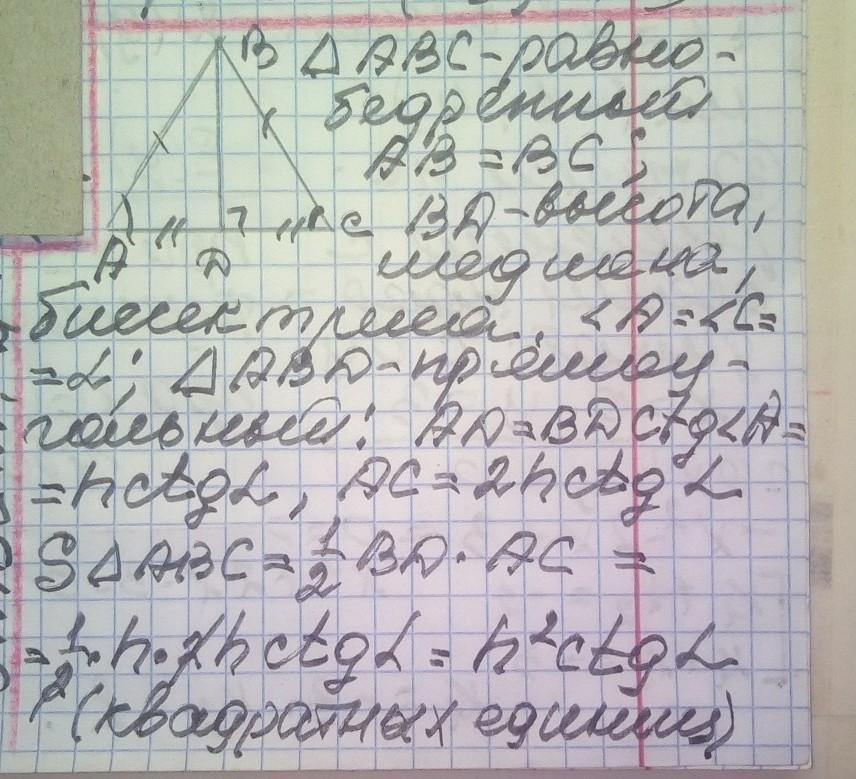 B △ABC-равно-
бедренный
AB = BC;
A D C BD-высота,
медиана,
биссектриса, ∠A=∠C=
=α; △ABD-прямоу-
гольный: AD=BDctg∠A=
=hctgα, AC=2hctgα
S△ABC=1/2 BD·AC =
=1/2·h·2hctgα = h²ctgα
(квадратных единиц)